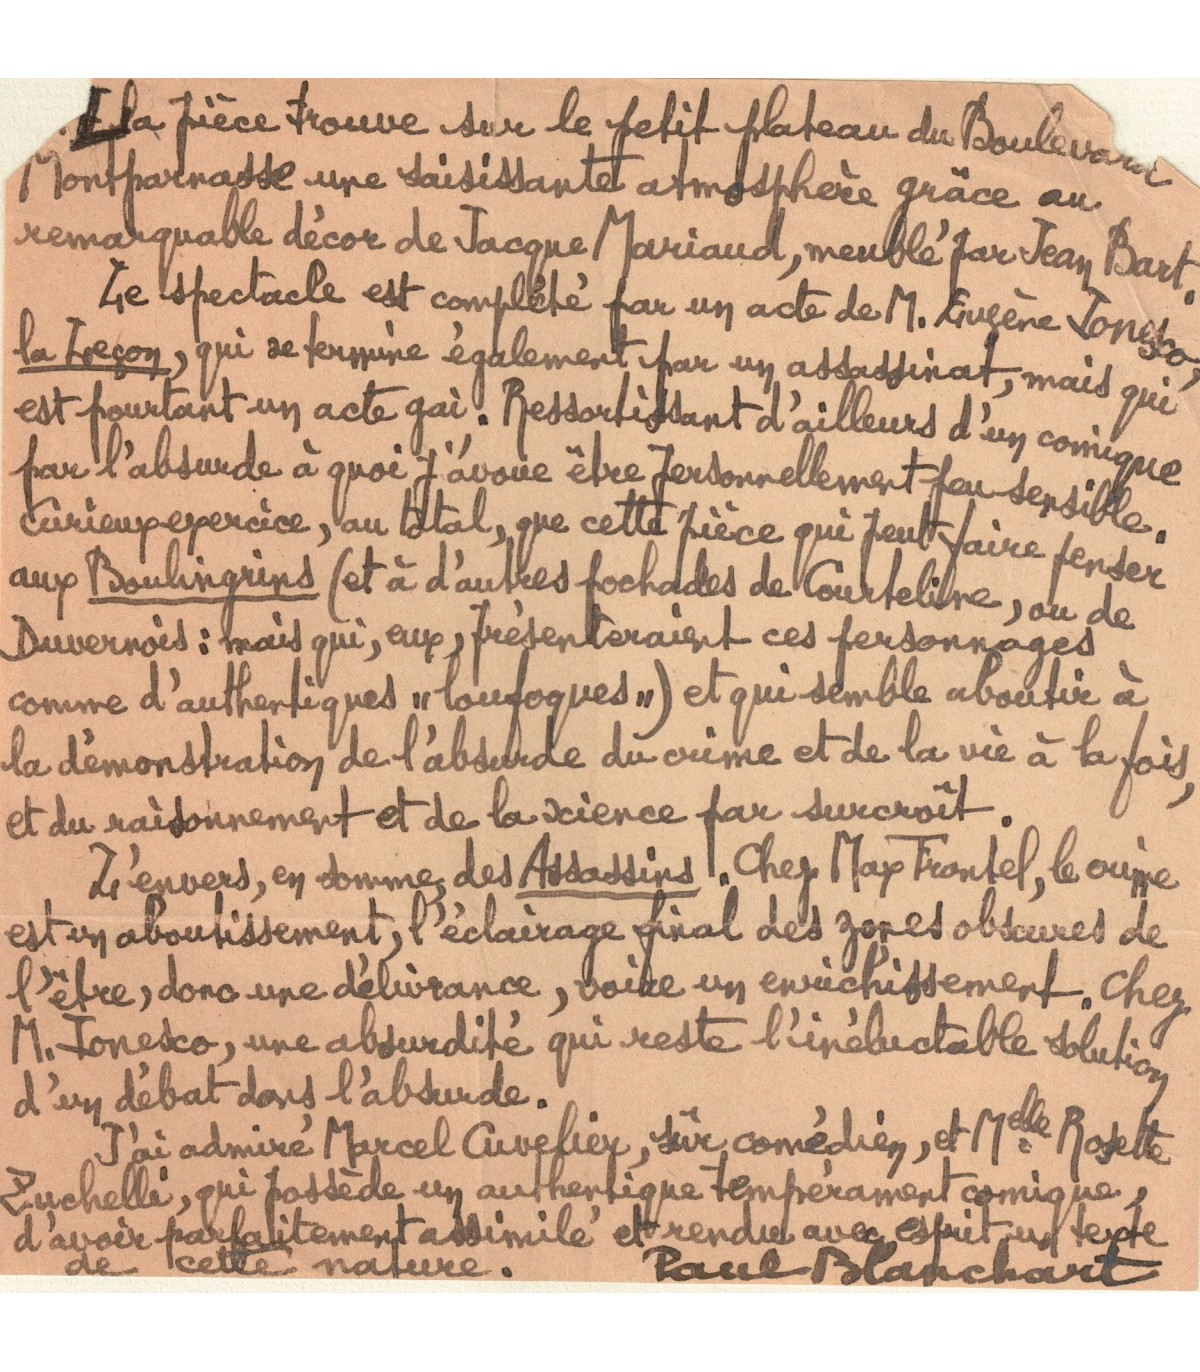 la pièce trouve sur le petit plateau du Boulevard
Montparnasse une saisissante atmosphère grâce au
remarquable décor de Jacque Mariaud, meublé par Jean Bart.
Le spectacle est complété par un acte de M. Eugène Ionesco,
la Leçon, qui se termine également par un assassinat, mais qui
est pourtant un acte gai. Ressortissant d'ailleurs d'un comique
par l'absurde à quoi j'avoue être personnellement peu sensible.
Curieux exercice, au total, que cette pièce qui peut faire penser
aux Boulingrins (et à d'autres pochades de Courteline, ou de
Duvernois : mais qui, eux, présenteraient ces personnages
comme d'authentiques "loufoques") et qui semble aboutir à
la démonstration de l'absurde du crime et de la vie à la fois,
et du raisonnement et de la science par surcroît.
L'envers, en somme, des Assassins. Chez Max Frantel, le crime
est un aboutissement, l'éclairage final des zones obscures de
l'être, donc une délivrance, voire un enrichissement. Chez
M. Ionesco, une absurdité qui reste l'inéluctable solution
d'un débat dans l'absurde.
J'ai admiré Marcel Cuvelier, sûr comédien, et Melle Rosette
Zuchelli, qui possède un authentique tempérament comique,
d'avoir parfaitement assimilé et rendu avec esprit un texte
de cette nature. Paul Blanchart